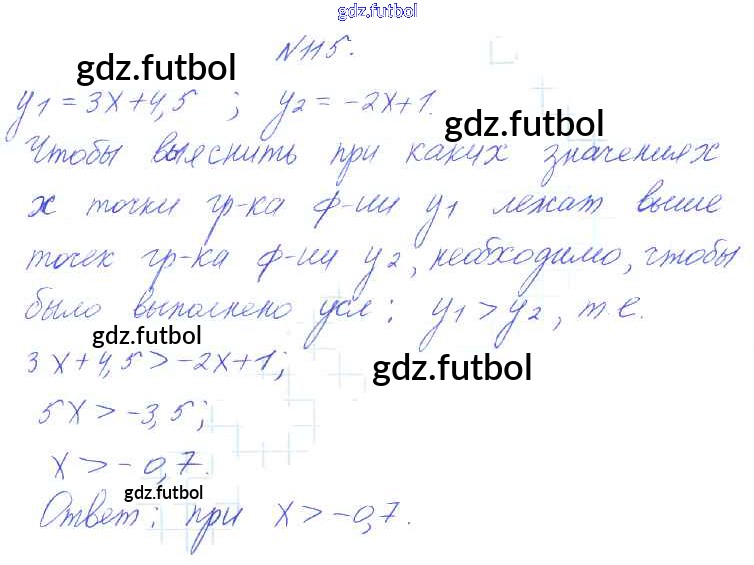 gdz.futbol
N115.
gdz.futbol
y1 = 3x+4,5 ; y2 = -2x+1.
gdz.futbol
Чтобы выяснить при каких значениях
x точки гр-ка ф-ии y1 лежат выше
точек гр-ка ф-ии y2, необходимо, чтобы
было выполнено усл: y1 > y2, т.е.
gdz.futbol
3x+4,5 > -2x+1;
gdz.futbol
5x > -3,5;
x > -0,7.
gdz.futbol
Ответ: при x > -0,7.